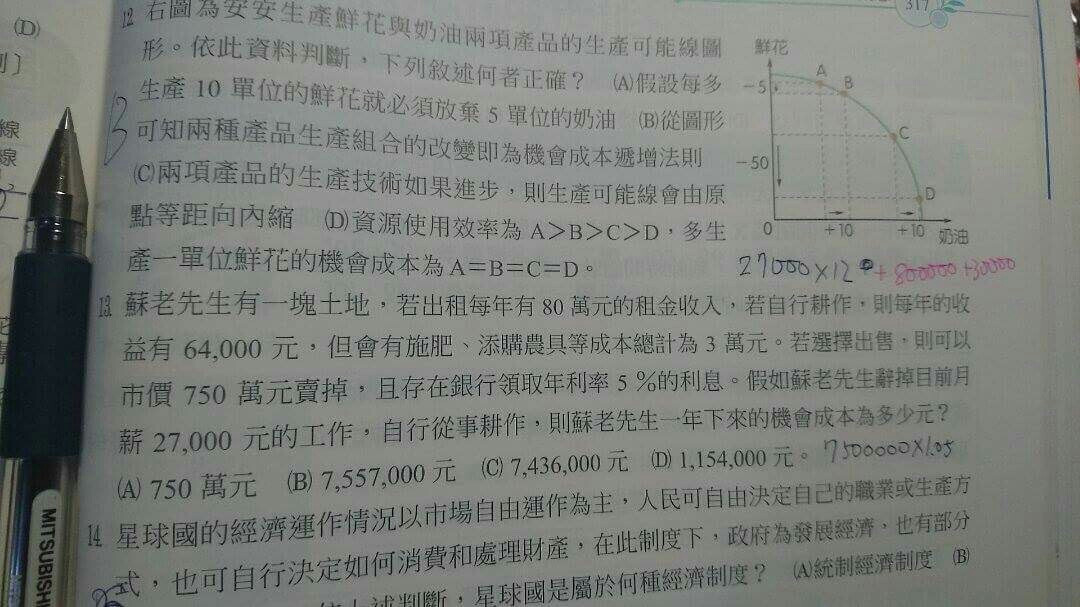 317
(D)
12 右圖為安安生產鮮花與奶油兩項產品的生產可能線圖
形。依此資料判斷，下列敘述何者正確？ (A)假設每多
生產 10 單位的鮮花就必須放棄 5 單位的奶油 (B)從圖形
可知兩種產品生產組合的改變即為機會成本遞增法則
(C)兩項產品的生產技術如果進步，則生產可能線會由原
點等距向內縮 (D)資源使用效率為 A＞B＞C＞D，多生
產一單位鮮花的機會成本為 A＝B＝C＝D。
B
鮮花
A
B
－5
C
－50
D
0
+10
+10
奶油
27000×12
+800000+30000
13. 蘇老先生有一塊土地，若出租每年有 80 萬元的租金收入，若自行耕作，則每年的收
益有 64,000 元，但會有施肥、添購農具等成本總計為 3 萬元。若選擇出售，則可以
市價 750 萬元賣掉，且存在銀行領取年利率 5 %的利息。假如蘇老先生辭掉目前月
薪 27,000 元的工作，自行從事耕作，則蘇老先生一年下來的機會成本為多少元？
(A) 750 萬元 (B) 7,557,000 元 (C) 7,436,000 元 (D) 1,154,000 元。
7500000×1.05
14. 星球國的經濟運作情況以市場自由運作為主，人民可自由決定自己的職業或生產方
式，也可自行決定如何消費和處理財產，在此制度下，政府為發展經濟，也有部分
上述判斷，星球國是屬於何種經濟制度？ (A)統制經濟制度 (B)
線
線
MITSUBISHI